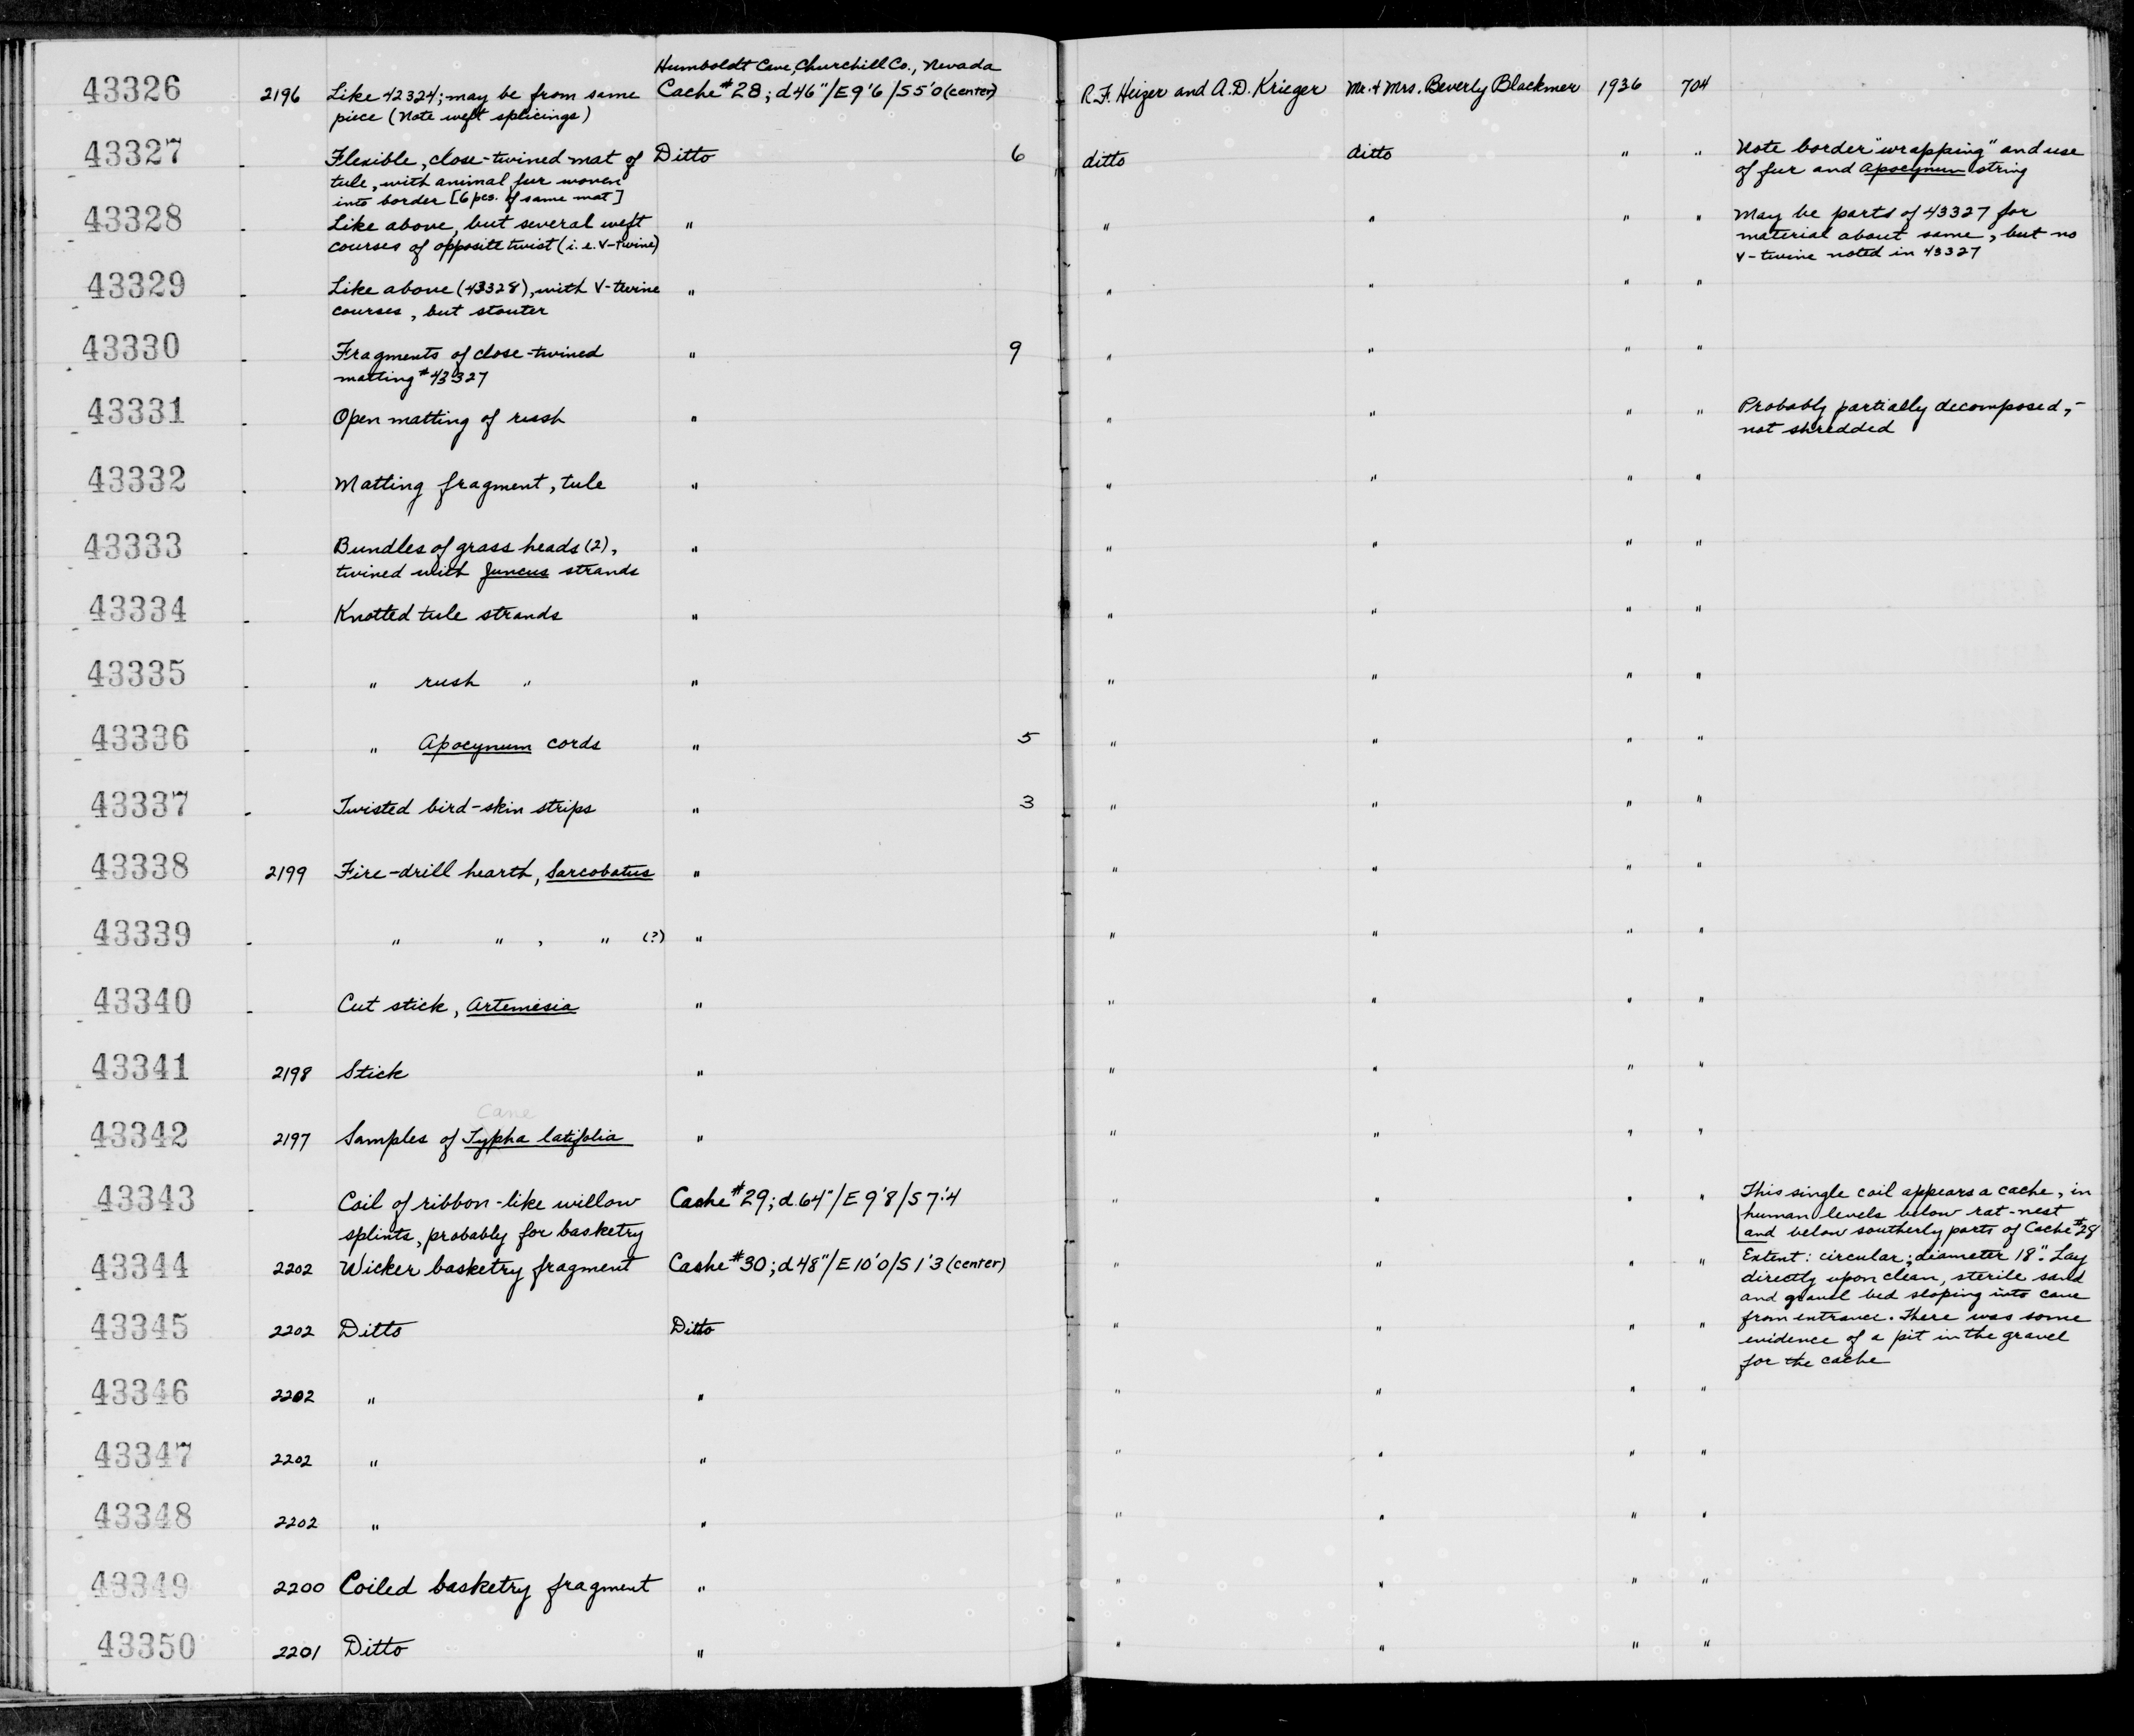 Humboldt Cave, Churchill Co., Nevada
43326 2196 Like 42324; may be from same Cache #28; d46"/E9'6/S5'0 (center) R.F. Heizer and A.D. Krieger Mr. & Mrs. Beverly Blackmer 1936 704
piece (Note weft splicings)
43327 Flexible, close-twined mat of Ditto 6 ditto ditto " " Note border "wrapping" and use
tule, with animal fur woven of fur and Apocynum string
into border [6 pcs. of same mat]
43328 Like above, but several weft " " " " " May be parts of 43327 for
courses of opposite twist (i.e. V-twine) material about same, but no
V-twine noted in 43327
43329 Like above (43328), with V-twine " " " " "
courses, but stouter
43330 Fragments of close-twined " 9 " " " "
matting #43327
43331 Open matting of rush " " " " " Probably partially decomposed,-
not shredded
43332 Matting fragment, tule " " " " "
43333 Bundles of grass heads (2), " " " " "
twined with Juncus strands
43334 Knotted tule strands " " " " "
43335 " rush " " " " " "
43336 " Apocynum cords " 5 " " " "
43337 Twisted bird-skin strips " 3 " " " "
43338 2199 Fire-drill hearth, Sarcobatus " " " " "
43339 " " , " (?) " " " " "
43340 Cut stick, Artemesia " " " " "
43341 2198 Stick " " " " "
Cane
43342 2197 Samples of Typha latifolia " " " " "
43343 Coil of ribbon-like willow Cache #29; d.64"/E9'8/S7'4 " " " " This single coil appears a cache, in
splints, probably for basketry human levels below rat-nest
and below southerly parts of Cache #28
43344 2202 Wicker basketry fragment Cache #30; d48"/E10'0/S1'3 (center) " " " " Extent: circular; diameter 18". Lay
directly upon clean, sterile sand
and gravel bed sloping into cave
43345 2202 Ditto Ditto " " " " from entrance. There was some
evidence of a pit in the gravel
for the cache
43346 2202 " " " " " "
43347 2202 " " " " " "
43348 2202 " " " " " "
43349 2200 Coiled basketry fragment " " " " "
43350 2201 Ditto " " " " "